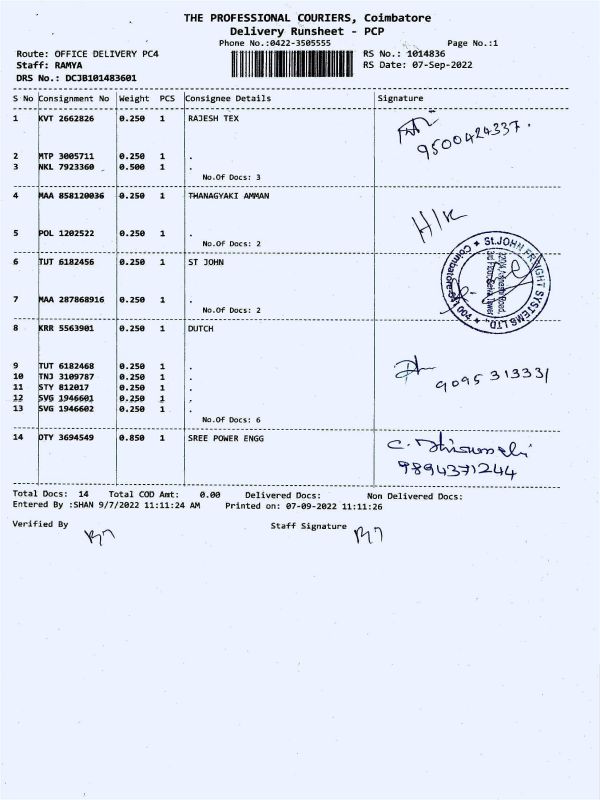 THE PROFESSIONAL COURIERS, Coimbatore
Delivery Runsheet - PCP
Phone No.:0422-3505555 Page No.:1
Route: OFFICE DELIVERY PC4 RS No.: 1014836
Staff: RAMYA RS Date: 07-Sep-2022
DRS No.: DCJB101483601
S No Consignment No Weight PCS Consignee Details Signature
1 KVT 2662826 0.250 1 RAJESH TEX
9500424337.
2 MTP 3005711 0.250 1 .
3 NKL 7923360 0.500 1 .
No.Of Docs: 3
4 MAA 858120036 0.250 1 THANAGYAKI AMMAN
H/K
5 POL 1202522 0.250 1 .
No.Of Docs: 2
6 TUT 6182456 0.250 1 ST JOHN
St.JOHN FREIGHT SYSTEMS LTD.
7 MAA 287868916 0.250 1 .
No.Of Docs: 2
8 KRR 5563901 0.250 1 DUTCH
9 TUT 6182468 0.250 1 .
9095313331
10 TNJ 3109787 0.250 1 .
11 STY 812017 0.250 1 .
12 SVG 1946601 0.250 1 .
13 SVG 1946602 0.250 1 .
No.Of Docs: 6
14 OTY 3694549 0.850 1 SREE POWER ENGG
9894371244
Total Docs: 14 Total COD Amt: 0.00 Delivered Docs: Non Delivered Docs:
Entered By :SHAN 9/7/2022 11:11:24 AM Printed on: 07-09-2022 11:11:26
Verified By Staff Signature